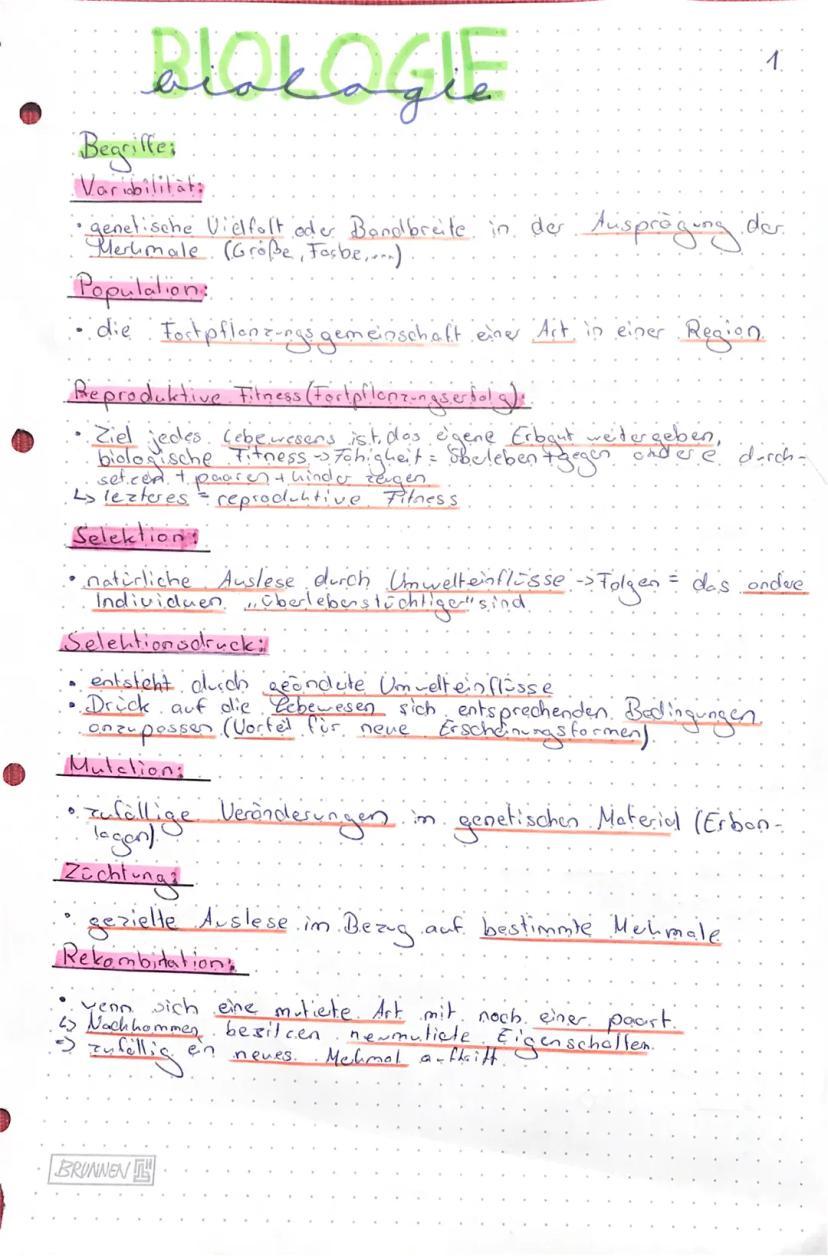 BIOLOGIE
biologie
1
Begriffe:
Variabilität:
• genetische Vielfalt oder Bandbreite in der Ausprägung der
Merkmale (Größe, Farbe,...)
Population:
• die Fortpflanzungsgemeinschaft einer Art in einer Region
Reproduktive Fitness (Fortpflanzungserfolg):
• Ziel jedes Lebewesens ist, das eigene Erbgut weitergeben,
biologische Fitness -> Fähigkeit = überleben + gegen andere durch-
setzen + paaren + kinder zeugen
↳ lezteres = reproduktive Fitness
Selektion:
• natürliche Auslese durch Umwelteinflüsse -> Folgen = das andere
Individuen „überlebenstüchtiger" sind
Selektionsdruck:
• entsteht durch geändete Umwelteinflüsse
• Druck auf die Lebewesen sich entsprechenden Bedingungen
anzupassen (Vorteil für neue Erscheinungsformen)
Mutation:
• zufällige Veränderungen im genetischen Material (Erban-
lagen)
Züchtung:
• gezielte Auslese im Bezug auf bestimmte Mekmale
Rekombitation:
• wenn sich eine mutiete Art mit noch einer paart.
↳ Nachkommen besitzen neumutiete Eigenschaften
=> zufällig ein neues Mekmal auftritt
BRUNNEN